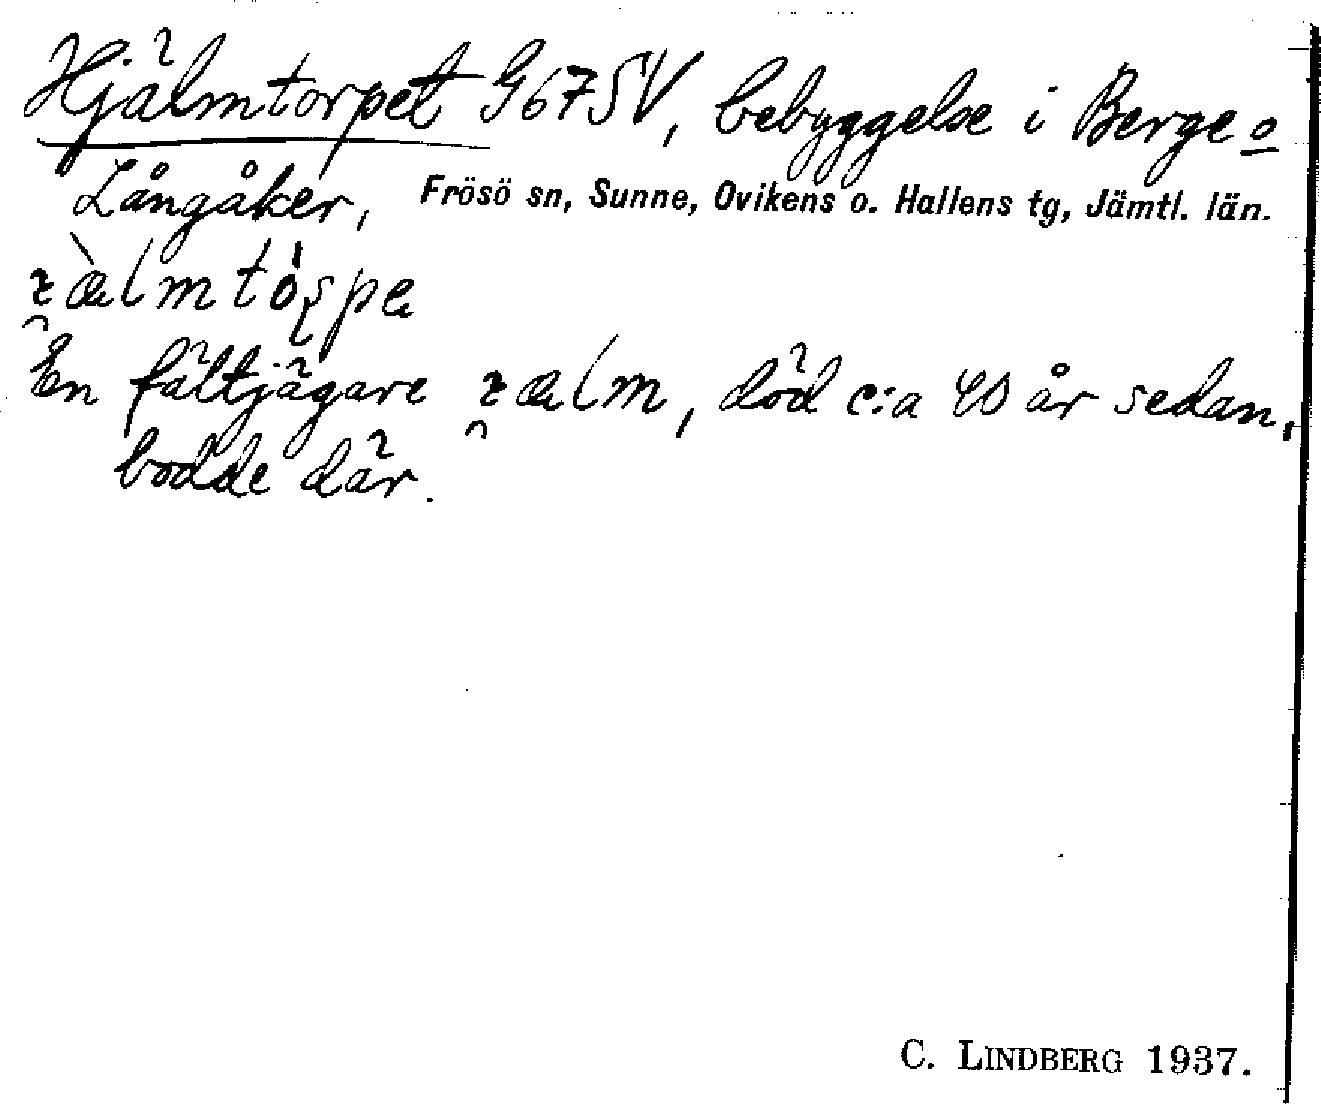 Hjälmtorpet G67SV, bebyggelse i Berge o
Långåker, Frösö sn, Sunne, Ovikens o. Hallens tg, Jämtl. län.
En fältjägare , död c:a 40 år sedan,
bodde där.
C. LINDBERG 1937.